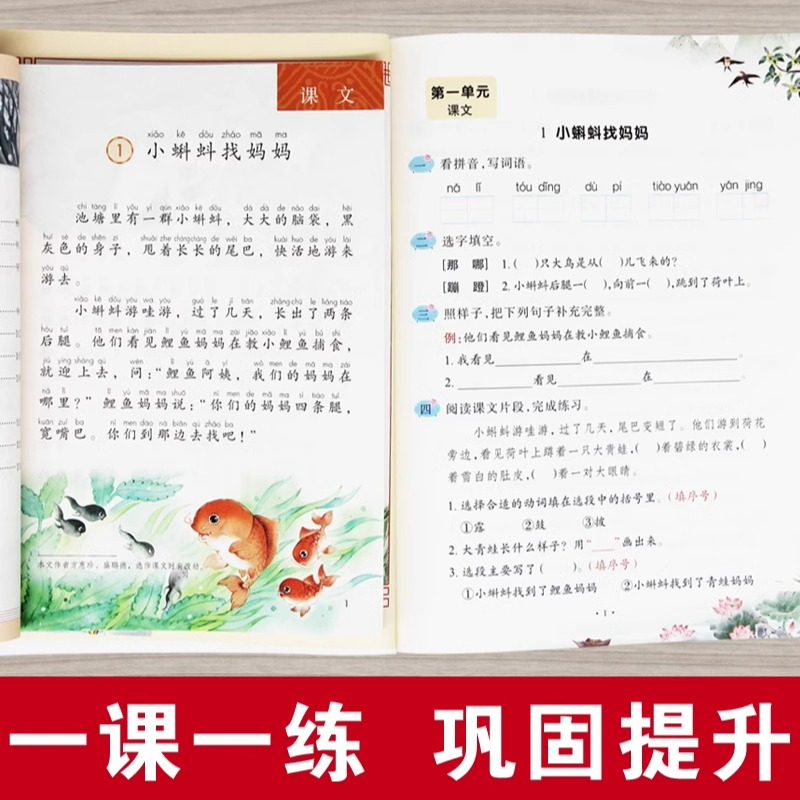 课文
xiǎo kē dǒu zhǎo mā ma
1 小蝌蚪找妈妈
池塘里有一群小蝌蚪，大大的脑袋，黑
灰色的身子，甩着长长的尾巴，快活地游来
游去。
小蝌蚪游哇游，过了几天，长出了两条
后腿。他们看见鲤鱼妈妈在教小鲤鱼捕食，
就迎上去，问：“鲤鱼阿姨，我们的妈妈在
哪里？”鲤鱼妈妈说：“你们的妈妈四条腿，
宽嘴巴。你们到那边去找吧！”
本文作者方惠珍、盛璐德，选作课文时有改动。
1
第一单元
课文
1 小蝌蚪找妈妈
一 看拼音，写词语。
nǎ lǐ tóu dǐng dù pí tiào yuǎn yǎn jing
二 选字填空。
[那 哪] 1.( )只大鸟是从( )儿飞来的？
[蹦 蹬] 2.小蝌蚪后腿一( )，向前一( )，跳到了荷叶上。
三 照样子，把下列句子补充完整。
例：他们看见鲤鱼妈妈在教小鲤鱼捕食。
1.我看见____________在____________。
2.____________看见____________在____________。
四 阅读课文片段，完成练习。
小蝌蚪游哇游，过了几天，尾巴变短了。他们游到荷花
旁边，看见荷叶上蹲着一只大青蛙，( )着碧绿的衣裳，( )
着雪白的肚皮，( )着一对大眼睛。
1.选择合适的动词填在选段中的括号里。（填序号）
①露 ②鼓 ③披
2.大青蛙长什么样子？用“____”画出来。
3.选段主要写了( )。（填序号）
①小蝌蚪找到了鲤鱼妈妈 ②小蝌蚪找到了青蛙妈妈
·1·
一课一练 巩固提升